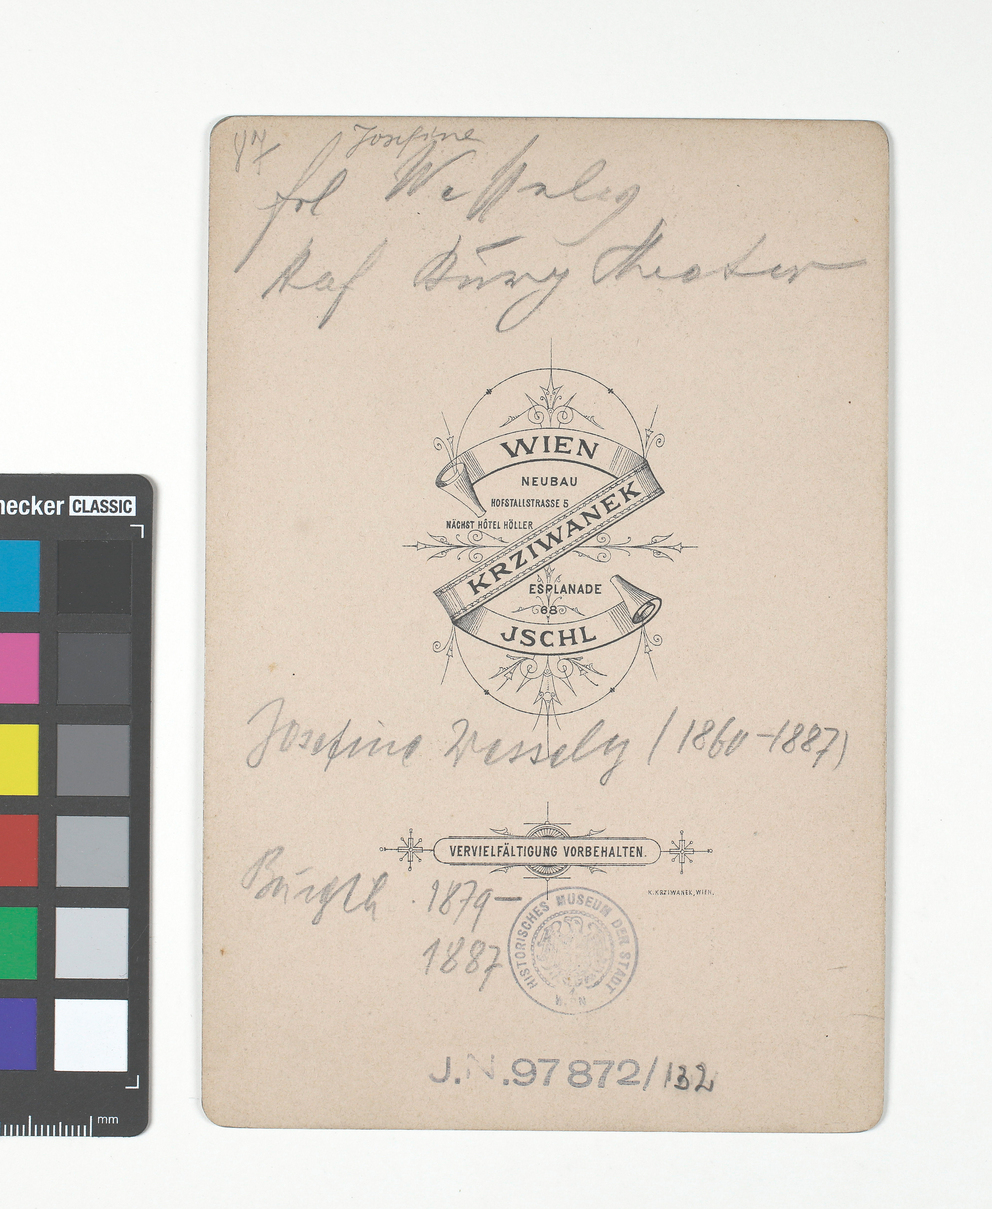 Josefine
frl Wessely
Hof Burg Theater
WIEN
NEUBAU
HOFSTALLSTRASSE 5
NÄCHST HÔTEL HÖLLER
KRZIWANEK
ESPLANADE
68
JSCHL
Josefine Wessely (1860-1887)
VERVIELFÄLTIGUNG VORBEHALTEN.
K.KRZIWANEK, WIEN.
Burgth. 1879-
1887
HISTORISCHES MUSEUM DER STADT WIEN
J.N.97872/132
necker CLASSIC
mm